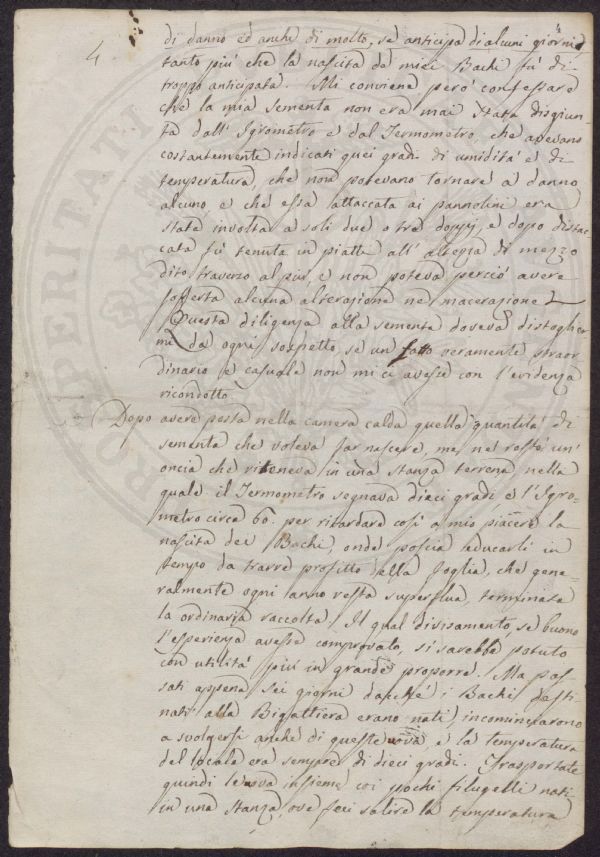 4
di danno ed anche di molto, se anticipa di alcuni giorni
tanto piu' che la nascita de miei Bachi fu' di
troppo anticipata. Mi conviene pero' confessare
che la mia sementa non era mai stata disgiun-
ta dall' Igrometro e dal Termometro, che avevano
costantemente indicati quei gradi di umidità e di
temperatura, che non potevano tornare a danno
alcuno e che essa attaccata ai pannolini era
stata involta a soli due o tre doppj, e dopo distac-
cata fu' tenuta in piatti all' altezza di mezzo
dito traverso al piu', e non poteva percio' avere
sofferta alcuna alterazione ne' macerazione
Questa diligenza alla sementa doveva distoglier
mi da ogni sospetto, se un fatto veramente straor
dinario e casuale non mi ci avesse con l'evidenza
ricondotto
Dopo avere posta nella camera calda quella quantita' di
sementa che voleva far nascere, me ne restò un'
oncia che riteneva in una stanza terrena nella
quale il Termometro segnava dieci gradi e l'Igro-
metro circa 60. per ritardare così a mio piacere la
nascita dei Bachi, onde poscia educarli in
tempo da trarre profitto della foglia, che gene-
ralmente ogni anno resta superflua, terminata
la ordinaria raccolta. Il qual divisamento, se buono
l'esperienza avesse comprovato, si sarebbe potuto
con utilità più in grande proporre. Ma pas
sati appena sei giorni dacché i Bachi desti
nati alla Bigattiera erano nati, incominciarono
a svolgersi anche di queste uova, e la temperatura
del locale era sempre di dieci gradi. Trasportate
quindi le uova insieme coi pochi filugelli nati
in una stanza, ove feci salire la temperatura
ROSPERITATI